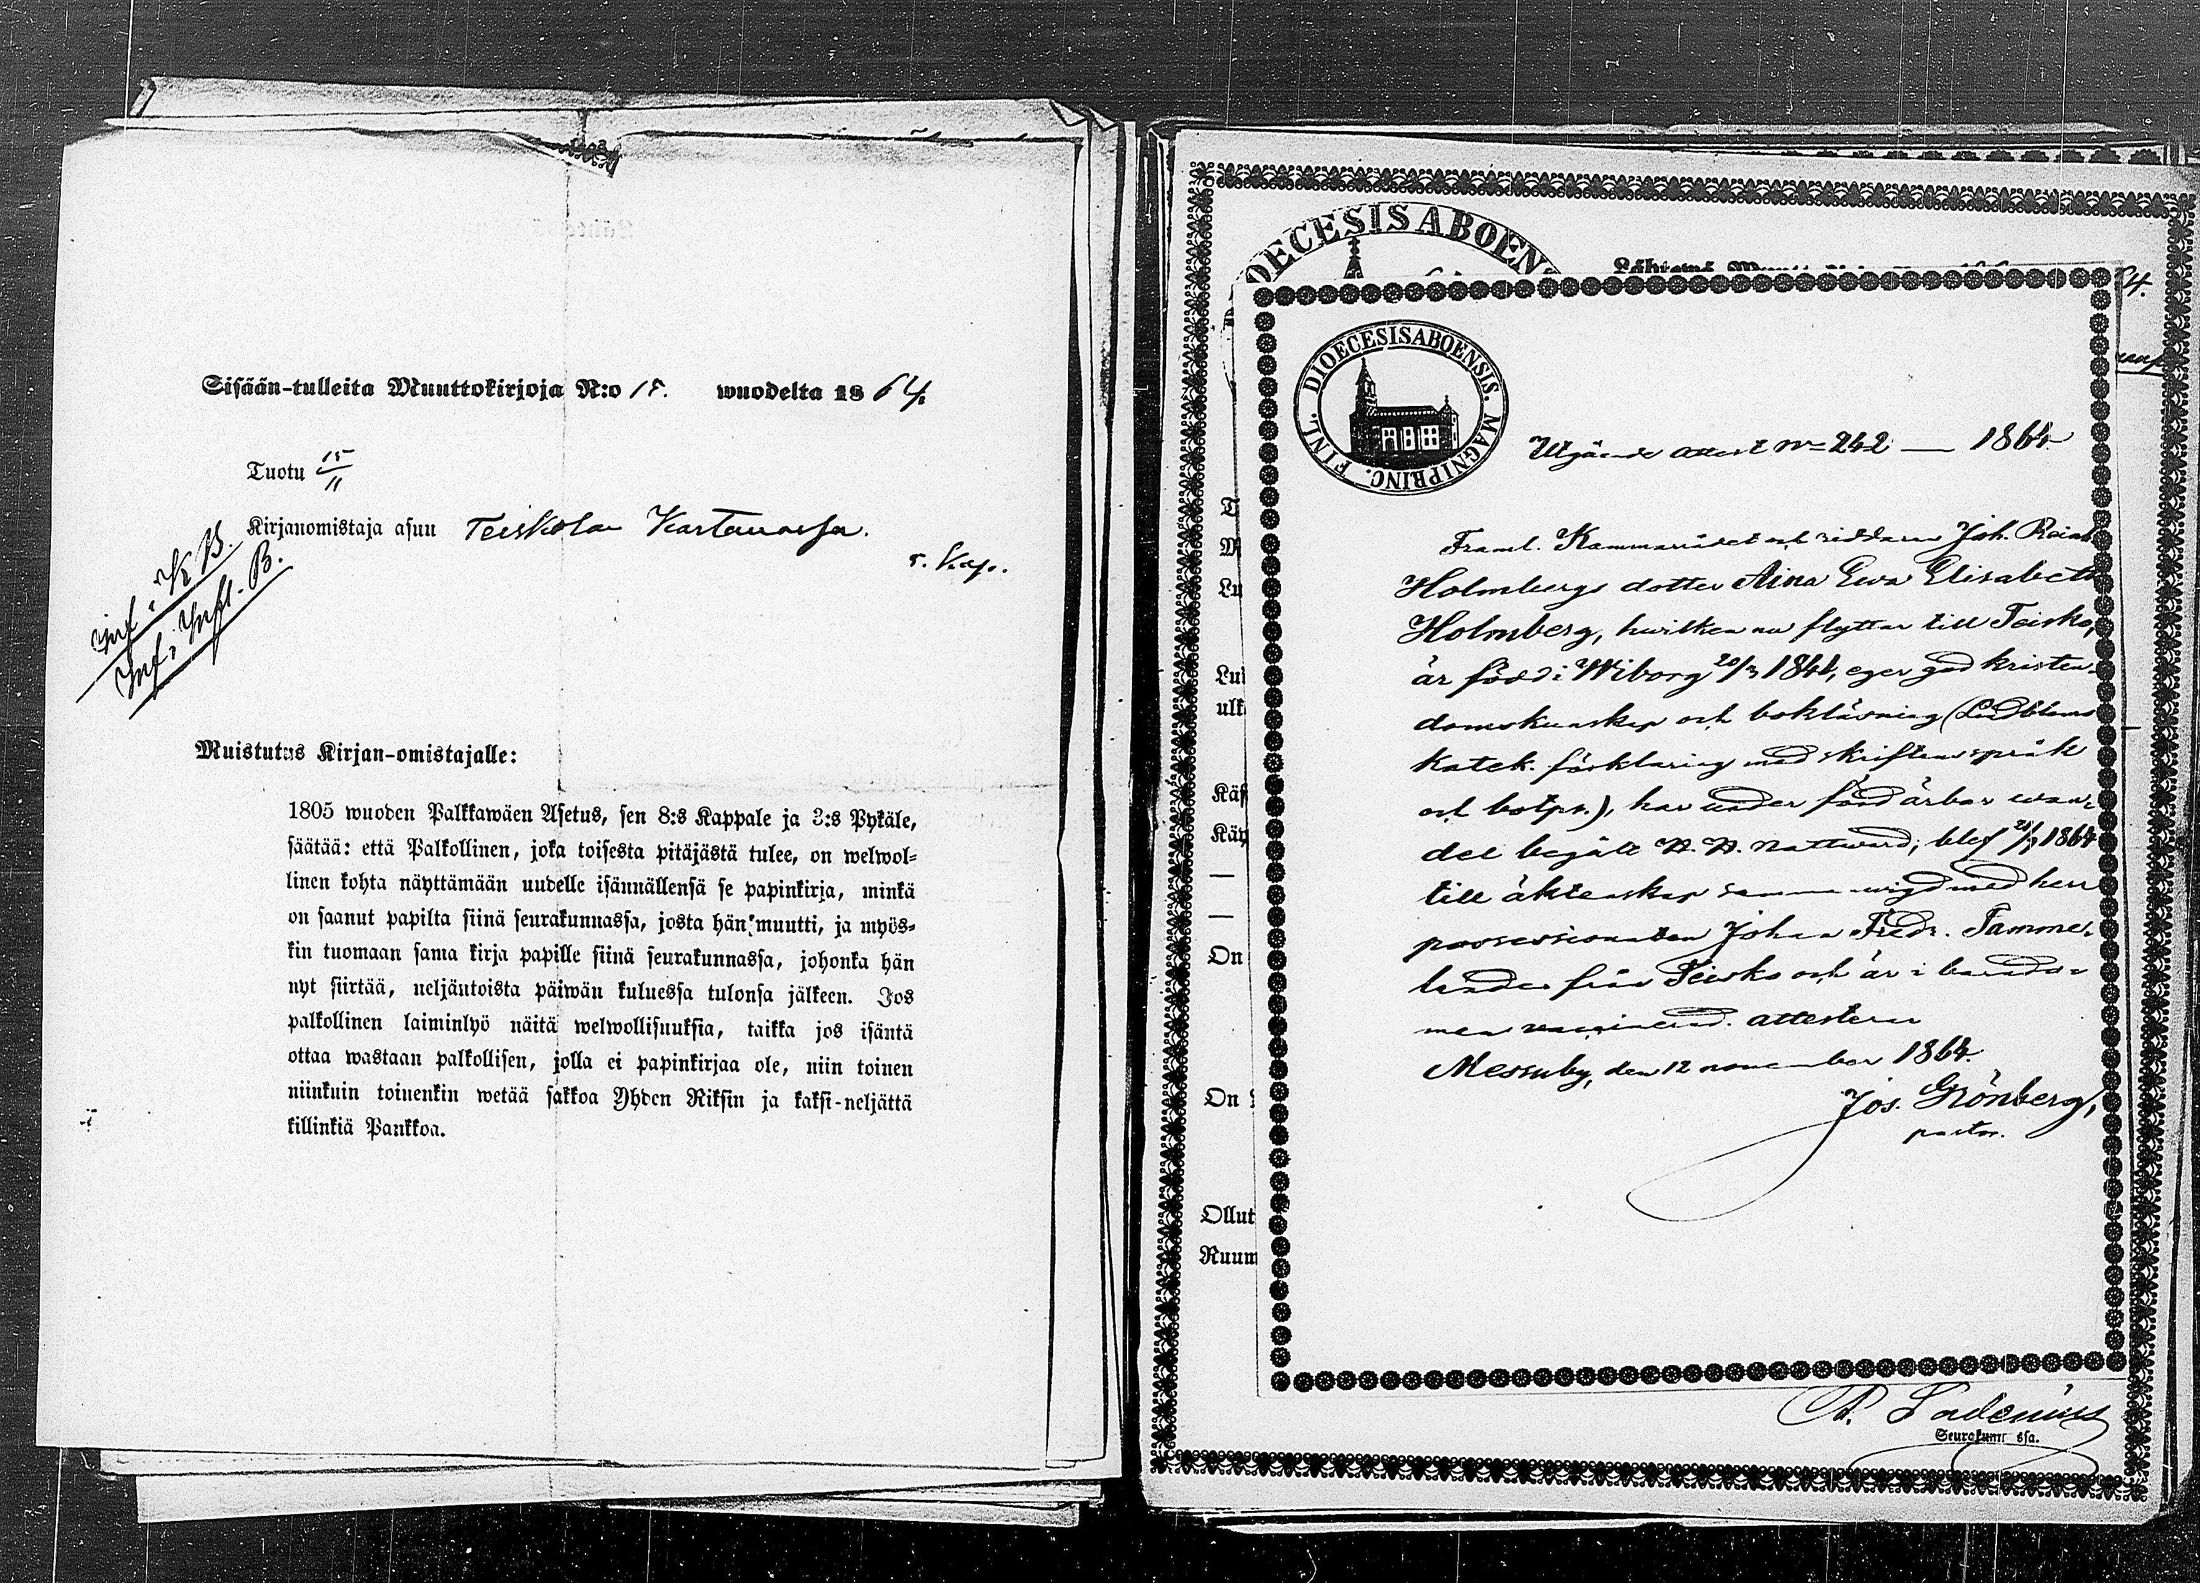 Sisään-tulleita Muuttokirjoja N:o 18. wuodelta 1864.
Tuotu 15/11
Kirjanomistaja asuu Teiskolan Kartanossa.
r. Kap.
Inf. i K B.
Inf. i Infl. B.
Muistutus Kirjan-omistajalle:
1805 wuoden Palkkawäen Asetus, sen 8:s Kappale ja 3:s Pykäle,
säätää: että Palkollinen, joka toisesta pitäjästä tulee, on welwol-
linen kohta näyttämään uudelle isännällensä se papinkirja, minkä
on saanut papilta siinä seurakunnassa, josta hän muutti, ja myös-
kin tuomaan sama kirja papille siinä seurakunnassa, johonka hän
nyt siirtää, neljäntoista päiwän kuluessa tulonsa jälkeen. Jos
palkollinen laiminlyö näitä welwollisuuksia, taikka jos isäntä
ottaa wastaan palkollisen, jolla ei papinkirjaa ole, niin toinen
niinkuin toinenkin wetää sakkoa Yhden Riksin ja kaksi-neljättä
killinkiä Pankkoa.
DIOECESIS ABOEN
DIOECESIS ABOENSIS. MAGNI PRINC. FINL.
Utgående attest No 242 — 1864
Framl. Kammarrådet och riddaren Joh. Rein
Holmbergs dotter Aina Ewa Elisabeth
Holmberg, hwilken nu flyttar till Teisko,
är född i Wiborg 20/3 1841, eger god kristen-
domskunskap och bokläsning (Lindbloms
katek. förklaring med skriftens språk
och botps.), har under försedärbar wan-
del begått H. H. Nattward; blef 1864
till äktenskap sammanwigd med herr
possessionaten Johan Fredr. Tamme-
lander från Teisko och är i barndo-
men vaccinerad. attesterar
Messuby, den 12 november 1864.
Jos. Grönberg,
pastor.
Lu
ulk
Käy
On
On
Ollut
Ruum
Seurakunnassa.